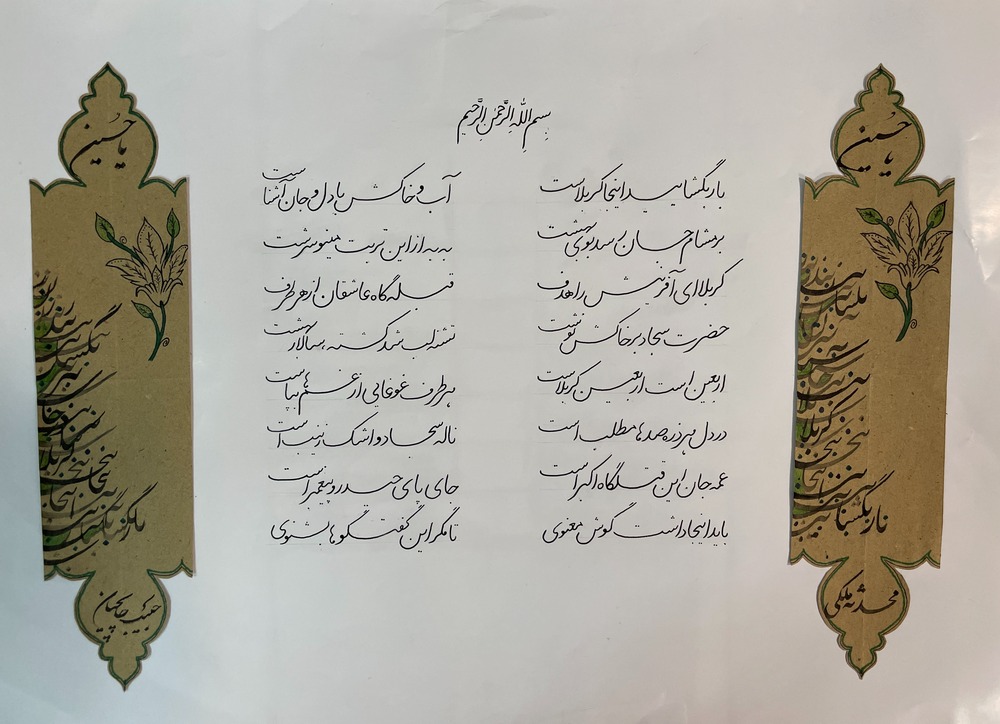 بسم الله الرحمن الرحیم
بار بگشایید اینجا کربلاست
آب و خاکش با دل و جان آشناست
بر مشام جان رسد بوی بهشت
به به از این تربت مینو سرشت
کربلا ای آفرینش را هدف
قبله گاه عاشقان از هر طرف
حضرت سجاد بر خاکش نوشت
تشنه لب شد کشته سالار بهشت
اربعین است اربعین کربلاست
هر طرف غوغایی از غم ها بپاست
در دل هر ذره صدها مطلب است
ناله سجاد و اشک زینب است
عمه جان این قتلگاه اکبر است
جای پای حیدر و پیغمبر است
باید اینجا داشت گوش معنوی
تا مگر این گفتگوها بشنوی
یا حسین
یا حسین
حبیب چایچیان